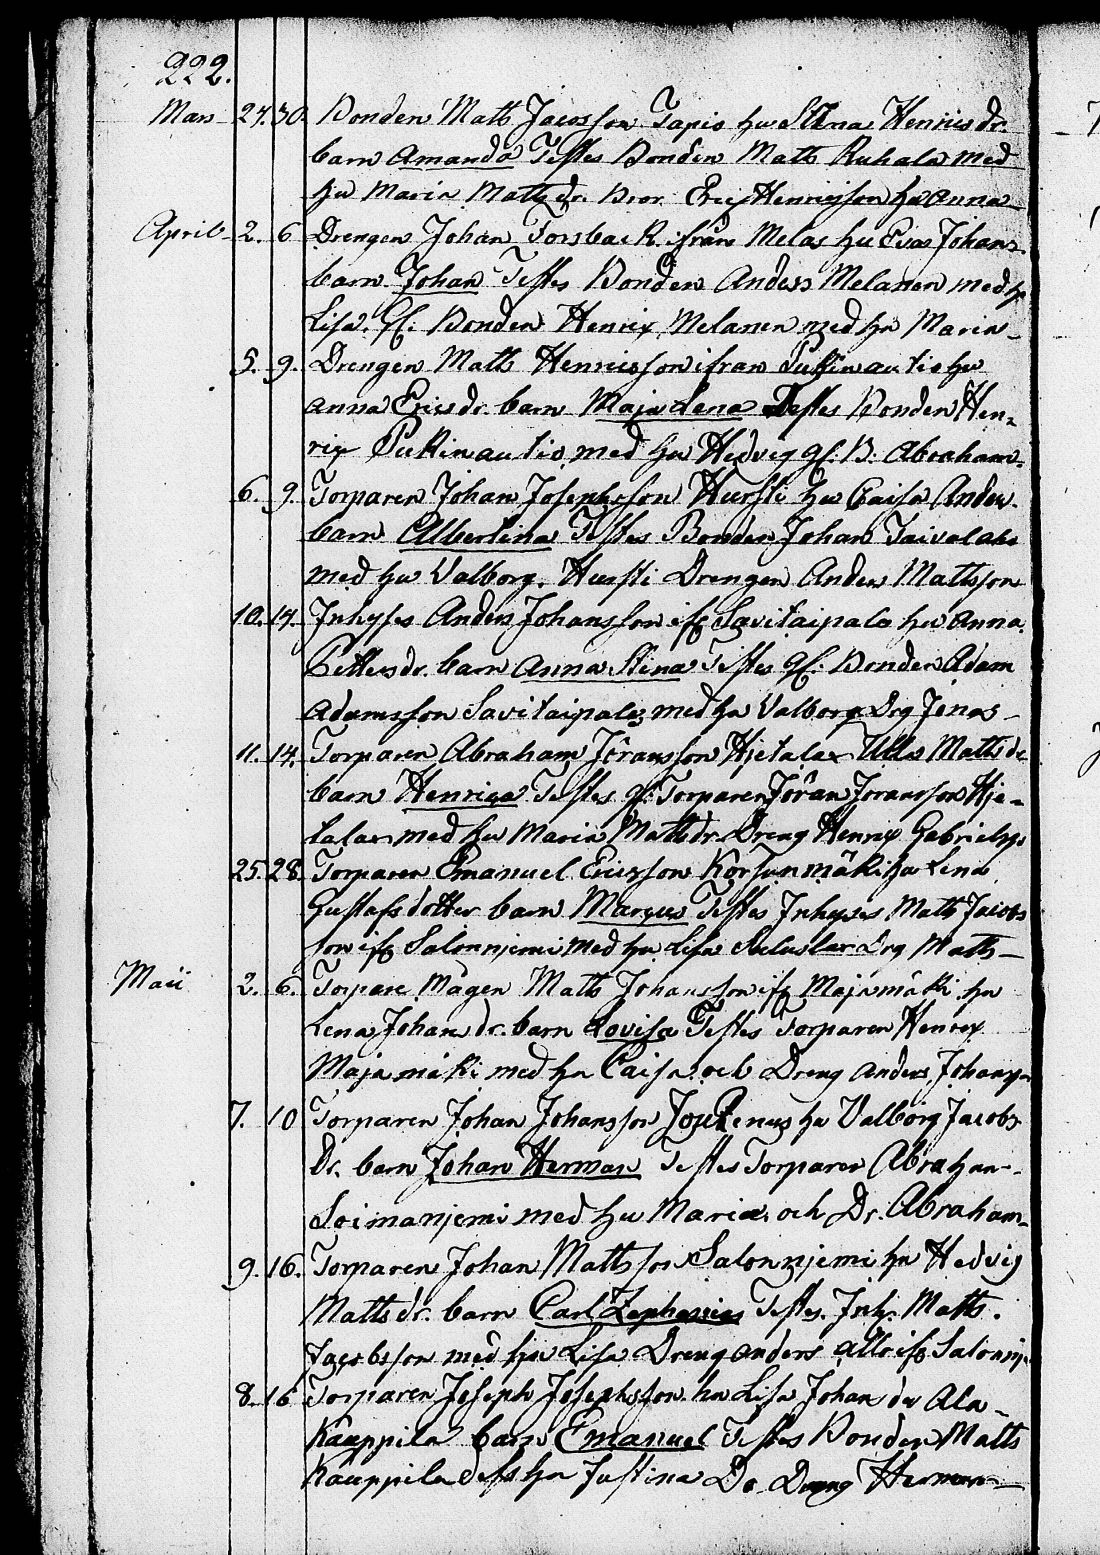 222.
Mars 27. 30. Bonden Matts Jacobsson Tapio hu Stina Henricsdr.
barn Amanda Testes Bonden Matts Ruhala med
hu Maria Mattsdr. Bror Eric Henricsson hu Anna
April 2. 6 Drengen Johan Forsback ifrån Melas hu Eva Johans
barn Johan Testes Bonden Anders Melanen med hu
Lisa. gl. Bonden Henrix Melanen med hu Maria
5. 9. Drengen Matts Henricsson ifrån Pukinautio hu
Anna Ericsdr. barn Maja Lena Testes Bonden Hen-
rix Pukinautio med hu Hedvig gl. B. Abraham
6. 9 Torparen Johan Josephsson Hursti hu Caisa Anders.
barn Albertina Testes Bonden Johan Taivalaho
med hu Valborg. Hursti Drengen Anders Mattsson
10. 14. Inhyses Anders Johansson ifr Savitaipale hu Anna
Pettersdr. barn Anna Stina Testes gl. Bonden Adam
Adamsson Savitaipale med hu Valborg Drg Jonas
11. 14. Torparen Abraham Jöransson Hjetalax Ulla Mattsdr
barn Henrica Testes gl. Torparen Jöran Joransson Hje-
talax med hu Maria Mattsdr. Dreng Henrix Gabrielss
25. 28. Torparen Emanuel Ericsson Korsunmäki hu Lena
Gustafsdotter barn Marcus Testes Inhyses Matts Jacobs
son ifr Salonnjemi med hu Lisa Drg Matts
Maii 2. 6. Torpare Mågen Matts Johansson ifr Majamäki hu
Lena Johansdr. barn Lovisa Testes Torparen Henrix
Majamäki med hu Caisa och Dreng Anders Johansson
7. 10 Torparen Johan Johansson hu Valborg Jacobs
Dr. barn Johan Herman Testes Torparen Abraham
Soimanjemi med hu Maria och Dr. Abraham
9. 16. Torparen Johan Mattsson Salonnjemi hu Hedvig
Mattsdr. barn Carl Zephanias Testes. Inh. Matts
Jacobsson med hu Lisa Dreng Anders alla ifr Salonnj.
8. 16 Torparen Joseph Josephsson hu Lisa Johansdr Ala-
Kauppila barn Emanuel Testes Bonden Matts
Kauppila dess hu Justina Do Dreng Herman